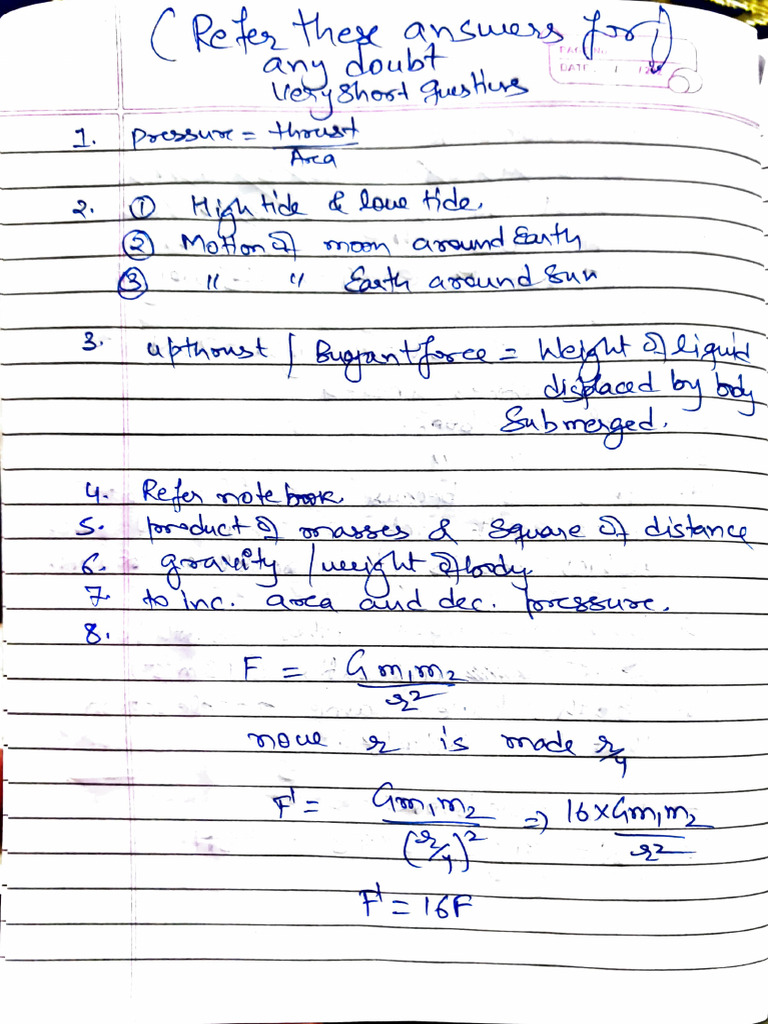 (Refer these answers for)
any doubt
Very short Questions
PAGE No.
DATE
1. Pressure = thrust / Area
2. ① High tide & low tide.
② Motion of moon around Earth
③ " " Earth around Sun
3. upthrust / Buoyant force = Weight of liquid
displaced by body
submerged.
4. Refer notebook
5. product of masses & square of distance
6. gravity / weight of body
7. to inc. area and dec. pressure.
8.
F = Gm₁m₂ / r²
now r is made r/4
F' = Gm₁m₂ / (r/4)² ⇒ 16×Gm₁m₂ / r²
F' = 16F